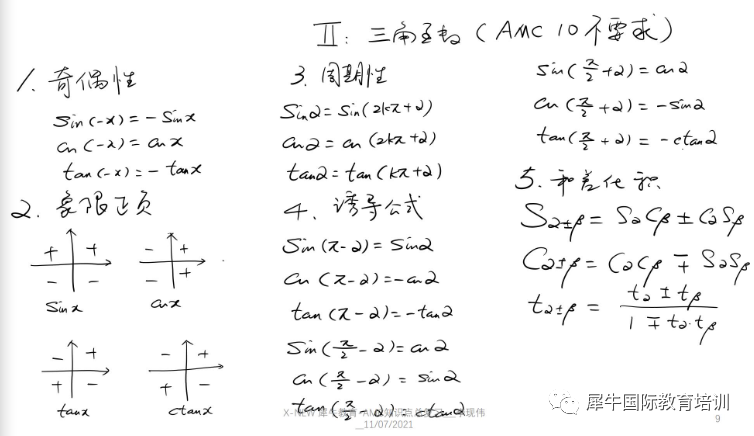 II: 三角函数 (AMC 10 不要求)
1. 奇偶性
sin(-x) = -sin x
cos(-x) = cos x
tan(-x) = -tan x
2. 象限正负
+ +
- -
sin x
- +
- +
cos x
- +
+ -
tan x
- +
+ -
ctan x
3. 周期性
sin α = sin(2kπ+α)
cos α = cos(2kπ+α)
tan α = tan(kπ+α)
4. 诱导公式
sin(π-α) = sin α
cos(π-α) = -cos α
tan(π-α) = -tan α
sin(π/2-α) = cos α
cos(π/2-α) = sin α
tan(π/2-α) = ctan α
sin(π/2+α) = cos α
cos(π/2+α) = -sin α
tan(π/2+α) = -ctan α
5. 和差化积
Sα±β = SαCβ ± CαSβ
Cα±β = CαCβ ∓ SαSβ
tα±β = (tα ± tβ)/(1 ∓ tα·tβ)
X-NEW 犀牛教育
11/07/2021
犀牛国际教育培训
9